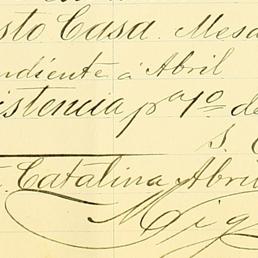 sto Casa. Mesa
ndiente a Abril
istencia pa 1º de
S.
Catalina Abri
Mig